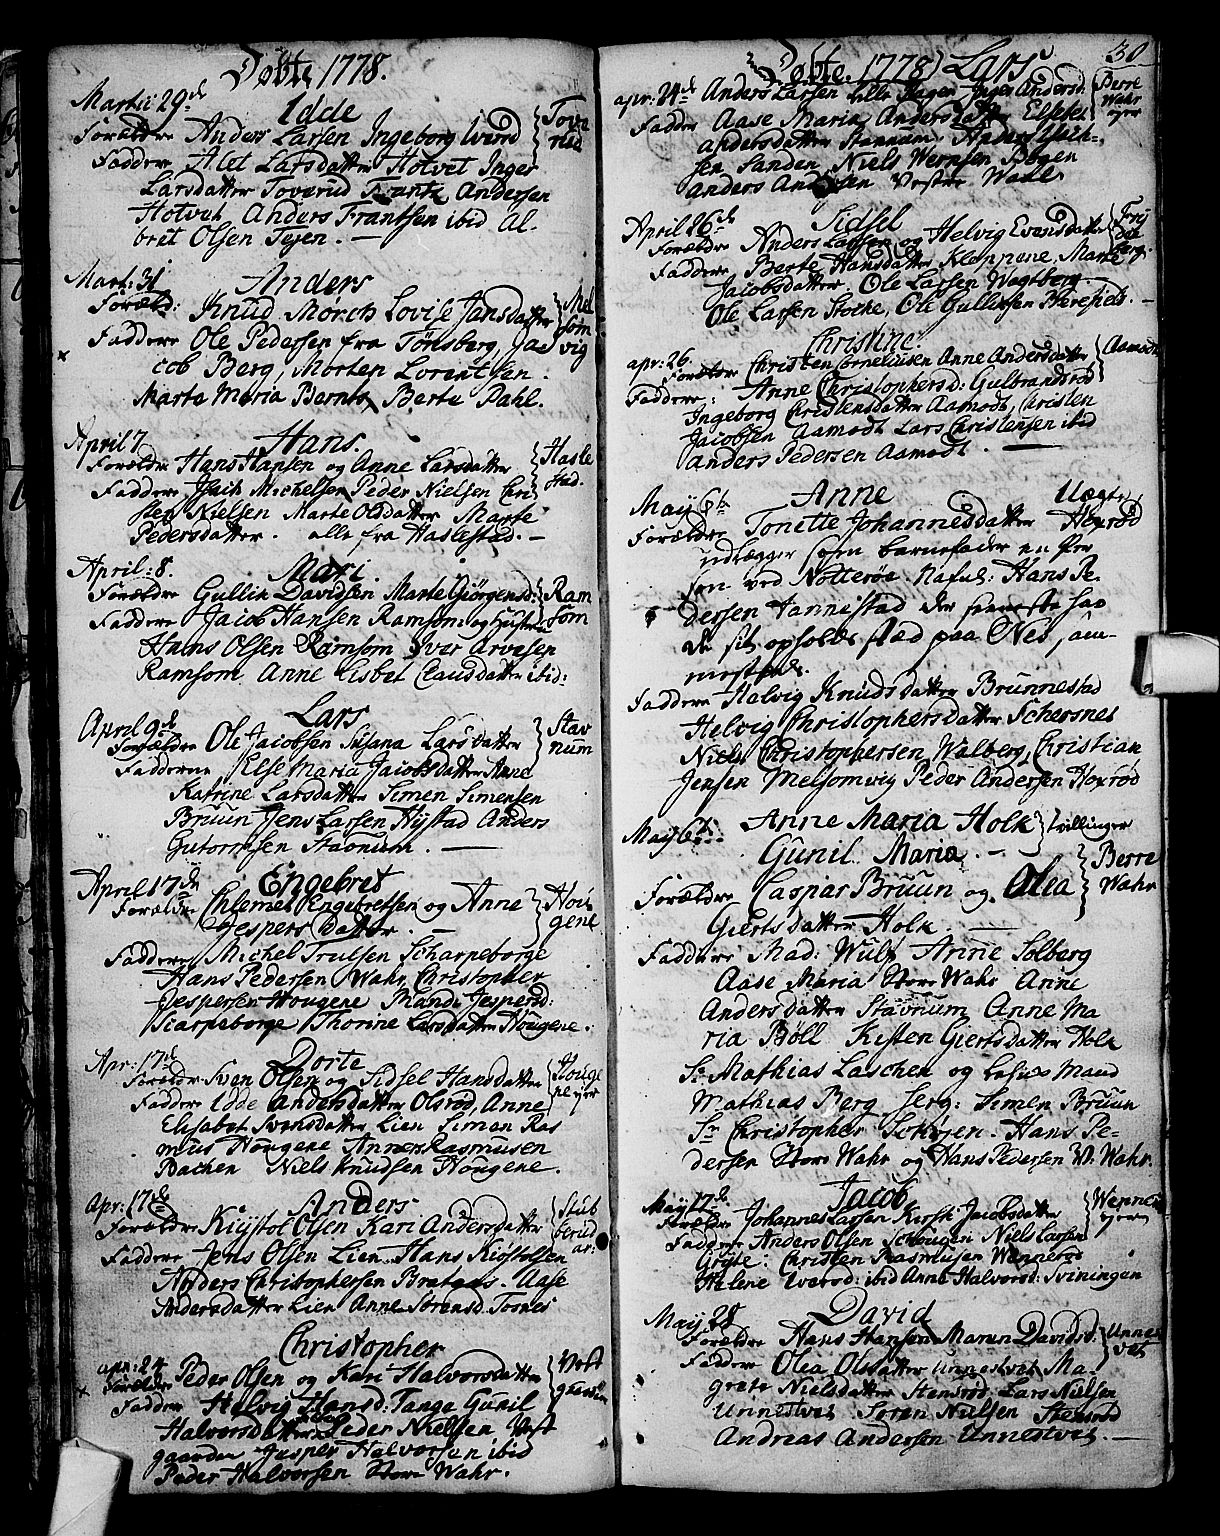 Döbte 1778.
Martii 29.d
Idde
Forældre Anders Larsen Ingeborg
Faddere Alet Larsdatter Hotvet Inger
Larsdatter Toverud Frantz Andersen
Hotvet Anders Frantsen ibid Al-
bret Olsen Tejen. —
Mart: 31
Anders
Foræld: Knud Mørch Lovise Jansdatter Mel
Faddere Ole Pedersen fra Tönsberg, Ja- som
cob Berg, Morten Lorentsen. vig
Marte Maria Bernts, Berte Dahl.
April 7
Hans.
Forældre Hans Hansen og Anne Larsdatter Hasle
Faddere Isach Michelsen Peder Nielsen Chri stad.
sten Nielsen Marte Olsdatter Marte
Pedersdatter. alle fra Haslestad. —
April: 8.
Mari.
Forældre Gullik Davidsen Marte Giörgensd: Ram
Faddere Jacob Hansen Ramsom: og Hustru som
Hans Olsen Ramsom Iver Arvesen
Ramsom Anne Lisbet Clausdatter ibid:
April 9.d
Lars
Forældre Ole Jacobsen Susana Larsdatter Stav
Fadderne Else Maria Jacobsdatter Anne num
Katrine Larsdatter Simen Simensen
Bruun Jens Larsen Hystad Anders
Gutormsen Stavnum. —
April 17.de
Engebret
Forældre Chlemet Engebretsen og Anne Hou
Jespersdatter. — gene
Faddere Michel Trulsen Scharpeborge
Hans Pedersen Wahr Christopher
Jespersen Hougene Jespersd:
Scarpeborge Thorine Larsdatter Hougene.
Apr: 17.d
Dorte
Forældre Sven Olsen og Sidsel Hansdatter Houge
Faddere Idde Andersdatter Olsröd, Anne ne
Elisabet Svensdatter Lien Simen Ras
mus Hougene Anners Rasmusen
Bachen Niels Knudsen Hougene.
Apr: 17.de
Anders
Forældre Kiöstol Olsen Kari Andersdatter Stub
Faddere Jens Olsen Lien Hans Kiöstelsen
Anders Christophersen Brataas. Aase
Andersdatter Lien Anne Sörensd. Tosnes
Christopher
apr: 24
Forældre Peder Olsen og Kari Halvorsdatter Vest
Faddere Helvig Hansd: Tange Gunil
Halvorsdatter Peder Nielsen Vest
gaarden Jesper Halvorsen ibid
Peder Halvorsen Store Wahr.
Döbte. 1778) Lars 30
apr: 24.de Anders Larsen Lille Hagen Inger Andersd: Berre
Faddere Aase Maria Andersdatter Elseke Wahr
Andersdatter Stavnum Anders
sen Sanden Niels Wernsen Bogen
Anders Andersen Vestre Wahl.
April 26.d
Sidsel
Forældre Anders Larsen og Helvig Evensdatter
Faddere Berte Hansdatter Kloppene, Marte berg.
Jacobsdatter. Ole Larsen Wegtberg
Ole Larsen Stocke, Ole Gullicksen —
Christine
apr: 26.
Forældre Christen Cornelitusen Anne Andersdatter Aamodt
Faddere: Anne Christophersd: Gulbrandsröd
Ingeborg Christensdatter Aamodt, Christen
Jacobsen Aamodt Lars Christensen ibid
Anders Pedersen Aamodt. —
May 6.te
Anne Uægte,
Forældre Tonette Johannesdatter Hoxröd
udlægger som barnefader en Per
son ved Nötteröe. Nafnl: Hans Pe-
dersen Jannestad der seeneste hav
de sit opholdsstæd paa Nes sem-
mestsæds.
Faddere Helvig Knudsdatter Brunnestad
Helvig Christophersdatter Schersnes
Niels Christophersen Walberg, Christian
Jensen Melsomvig Peder Andersen Hoxröd
May 6.te Anne Maria Holk tvillinger
Gunil Maria. —
Forældre Caspar Bruun og Olea Berre
Giertsdatter Holk. — Wahr
Faddere Mad: Wulf Anne Solberg
Aase Maria Store Wahr Anne
Andersdatter Stavnum Anne Ma
ria Böll Kisten Giertsdatter Holk
Sr Mathias Laschen og Mand
Mathias Berg Serg: Simen Bruun
Sr Christopher Hans Pe-
dersen Store Wahr og Hans Pedersen W: Wahr.
May 17.de
Jacob
Forældre Johannes Larsen Kirsti Jacobsdatter
Faddere Anders Olsen Schougen Niels Larsen
Gryte: Christen Rasmusen Wenneröe
Helene Iversd: ibid Anne Halvorsd: Sviningen
May 28
David
Forældre Hans Hansen Maren Davidsd: Unnes
Faddere Olea Olsdatter Unnestvet Ma- vet
grete Nielsdatter Stensröd Lars Nielsen
Unnestvet Sören Nielsen Stensröd
Andreas Andersen Unnestvet. —